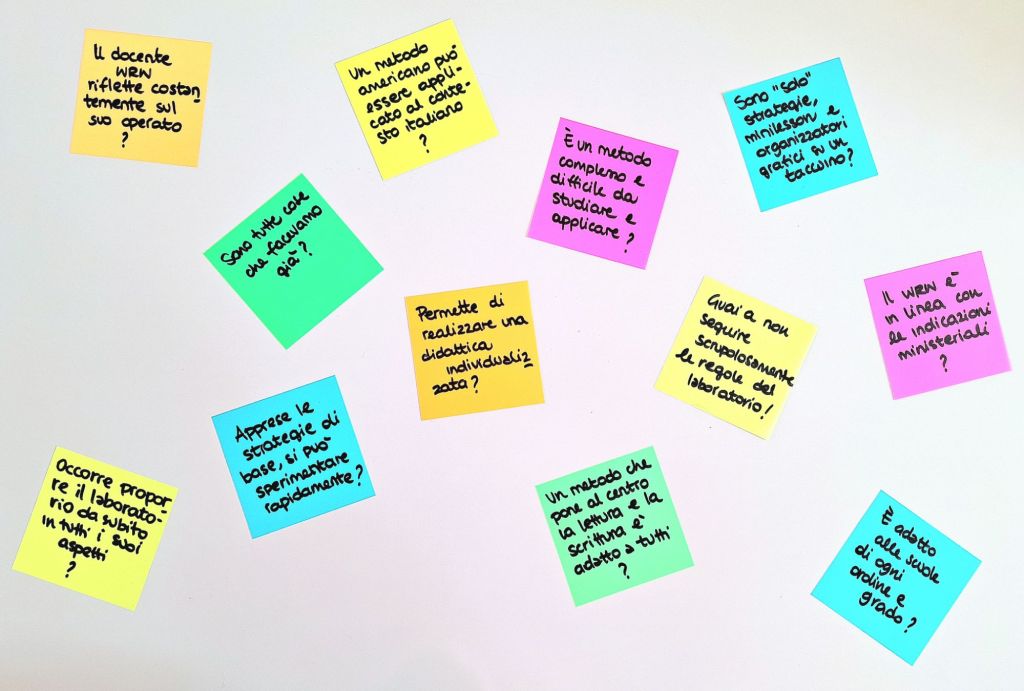 Il docente
WRW
riflette costan
temente sul
suo operato
?
Un metodo
americano può
essere appli-
cato al conte-
sto italiano
?
Sono "solo"
strategie,
minilesson e
organizzatori
grafici su un
taccuino?
È un metodo
complesso e
difficile da
studiare e
applicare?
Sono tutte cose
che facevamo
già?
Permette di
realizzare una
didattica
individualiz
zata?
Guai a non
seguire
scrupolosamente
le regole del
laboratorio!
Il WRW è
in linea con
le indicazioni
ministeriali
?
Apprese le
strategie di
base, si può
sperimentare
rapidamente?
Occorre propor
re il laborato-
rio da subito
in tutti i suoi
aspetti
?
Un metodo che
pone al centro
la lettura e la
scrittura è
adatto a tutti
?
È adatto
alle scuole
di ogni
ordine e
grado?